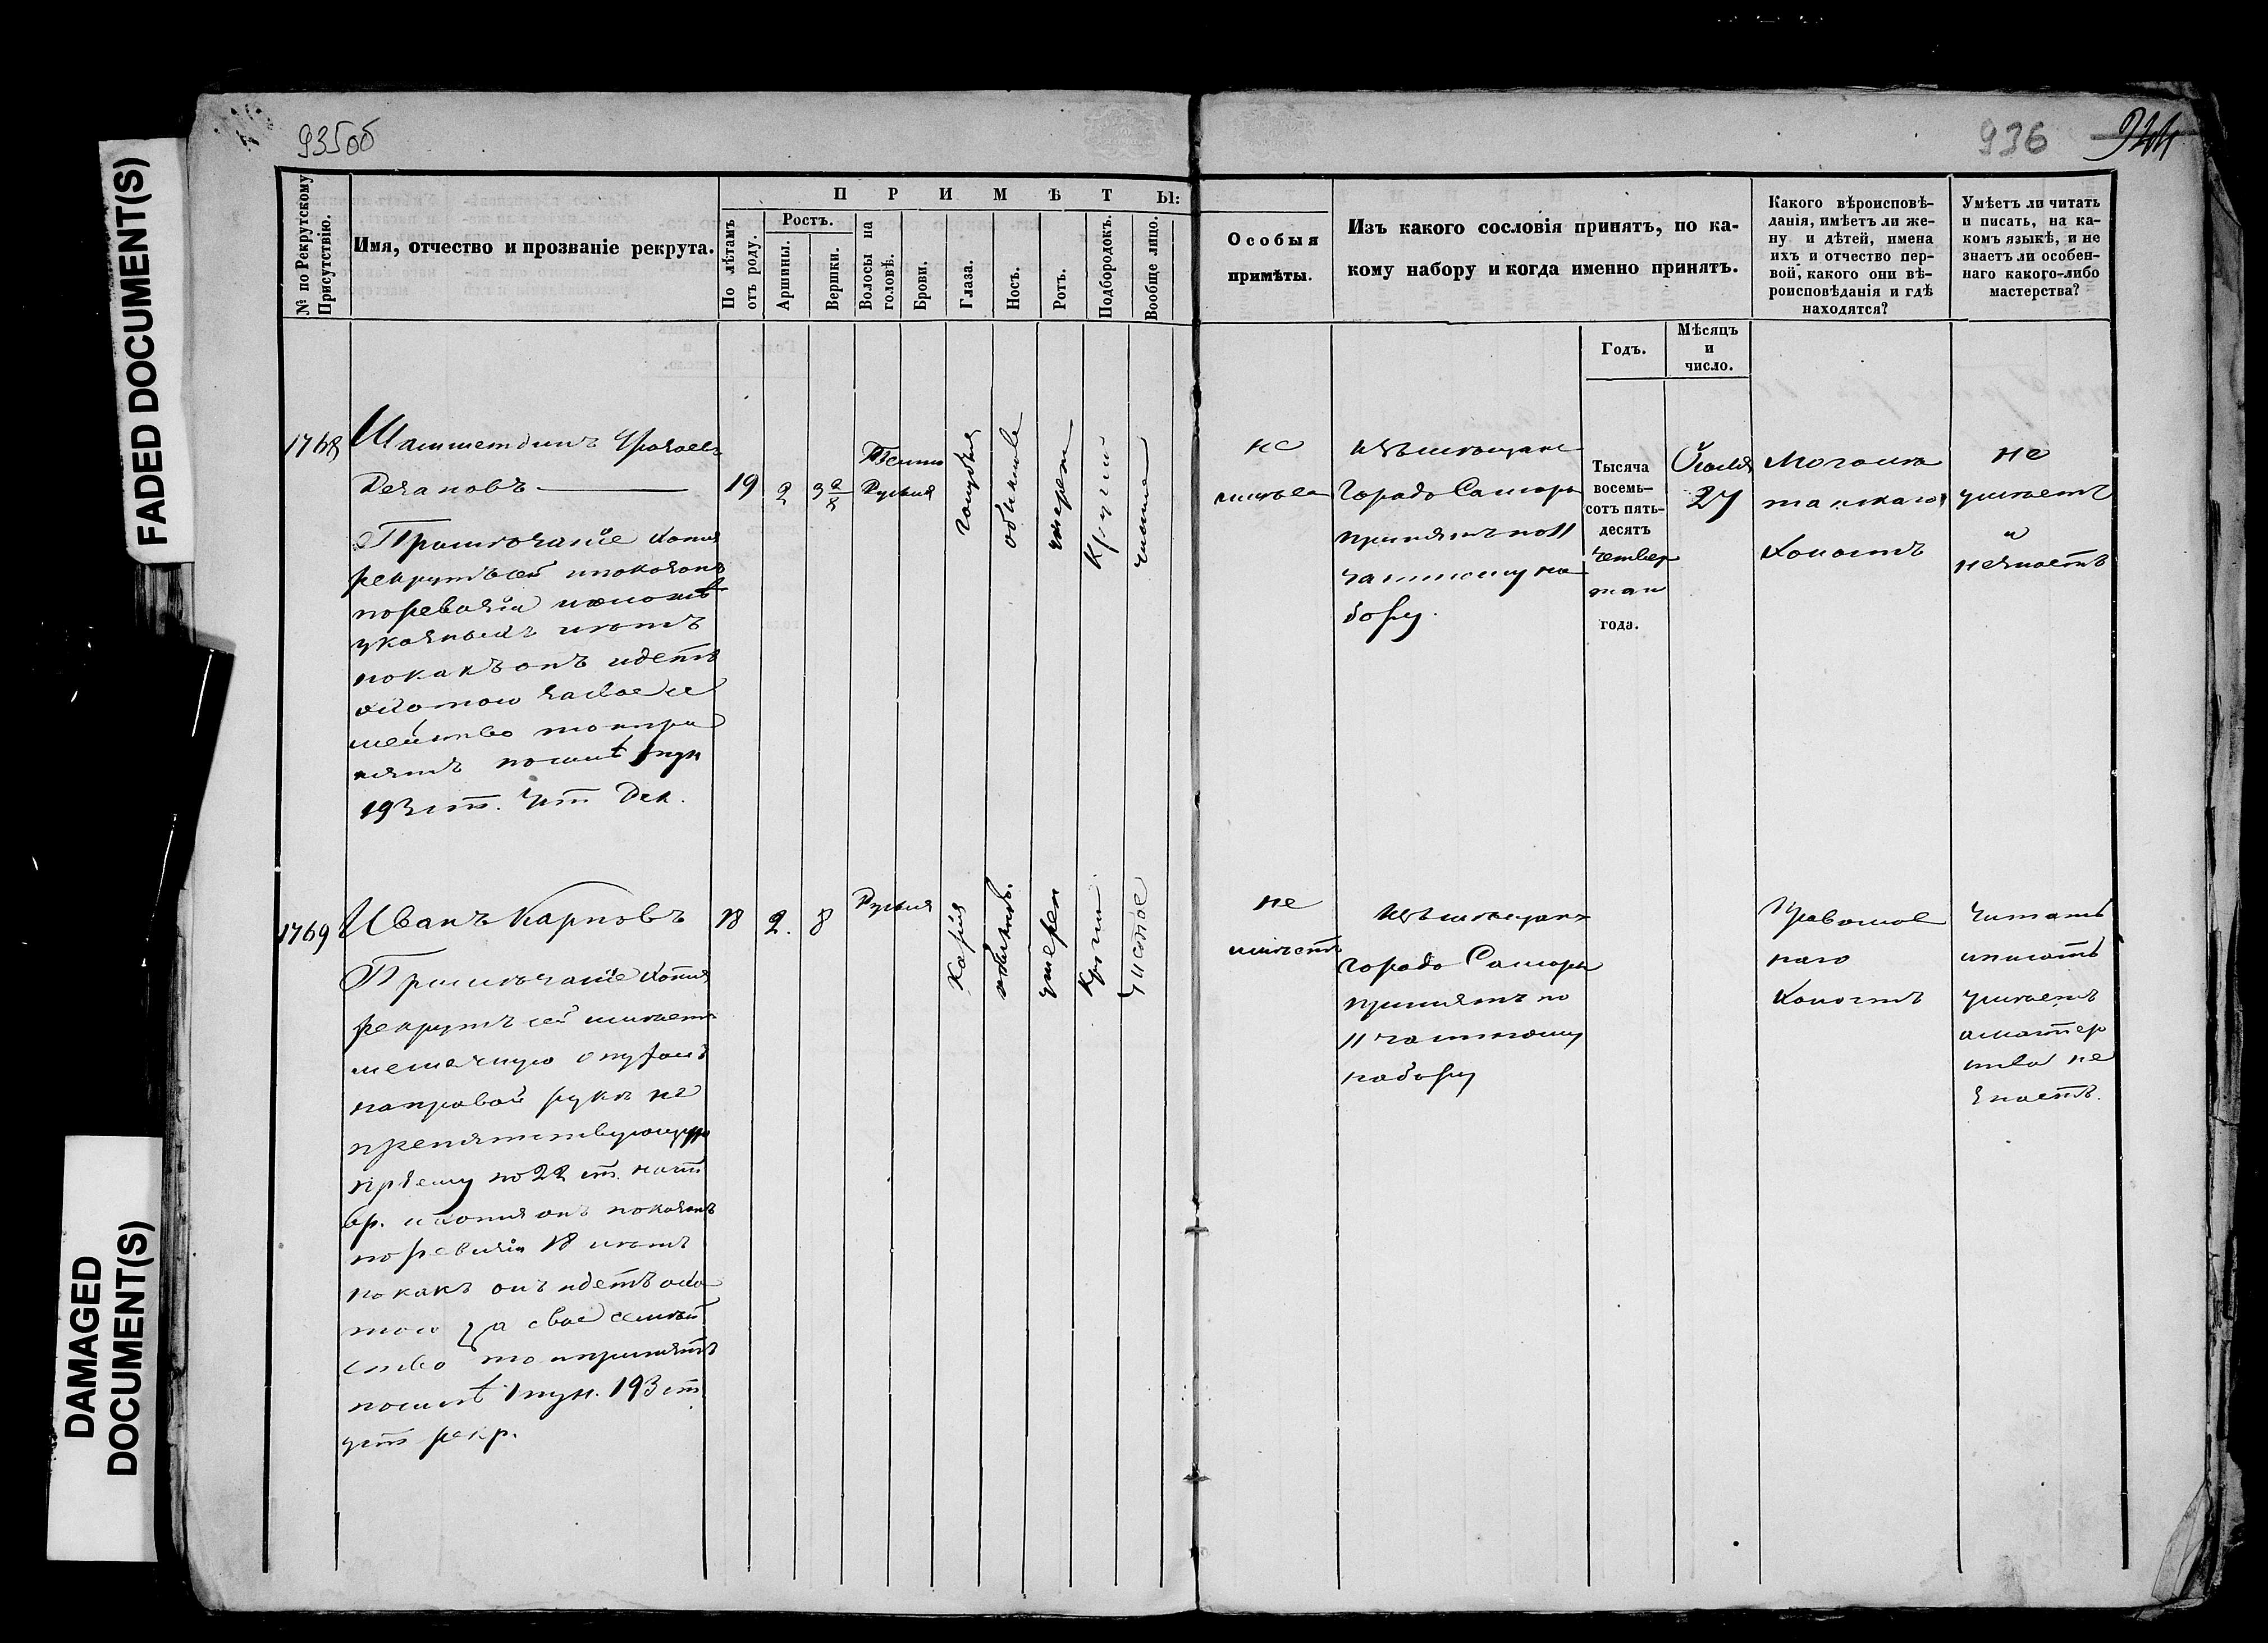 FADED DOCUMENT(S)
DAMAGED
DOCUMENT(S)
935об
936
944
№ по Рекрутскому
Присутствію.
Имя, отчество и прозваніе рекрута.
ПРИМѢТЫ:
По лѣтамъ
отъ роду.
Ростъ.
Аршины.
Вершки.
Волосы на
головѣ.
Брови.
Глаза.
Носъ.
Ротъ.
Подбородокъ.
Вообще лицо.
Особыя
примѣты.
Изъ какого сословія принятъ, по ка-
кому набору и когда именно принятъ.
Годъ.
Мѣсяцъ
и
число.
Какого вѣроисповѣ-
данія, имѣетъ ли же-
ну и дѣтей, имена
ихъ и отчество пер-
вой, какого они вѣ-
роисповѣданія и гдѣ
находятся?
Умѣетъ ли читать
и писать, на ка-
комъ языкѣ, и не
знаетъ ли особен-
наго какого-либо
мастерства?
1768
Примѣчаніе хотя
рекрутъ сей и показанъ
по ревизіи
указныхъ лѣтъ
но какъ онъ идетъ
охотою за свое се
мейство то и при
нятъ по силѣ 1 пун
193 ст. Уст Рек.
19
2
3
Русыя
голубыя
обыкнове
умерен
Круглый
чистое
не
имѣетъ
изъ мѣщанъ
города Самары
принятъ по 11
частному на
бору.
Тысяча
восемь-
сотъ пять-
десятъ
четвер
таго
года.
Іюля
27
Магоме
танскаго
холостъ
не
умѣетъ
и
не знаетъ
1769
Иванъ Карповъ
Примѣчаніе хотя
рекрутъ сей имѣетъ
на правой рукѣ не
препятствующую
пріему по 22 ст. наст
вр. и хотя онъ показанъ
по ревизіи 18 лѣтъ
но какъ онъ идетъ охо
тою за свое семей
ство то и принятъ
по силѣ 1 пун. 193 ст.
уст рекр.
18
2.
8
Русыя
Карія
обыкнов.
умерен
Кругл
чистое
не
имѣетъ
Изъ мѣщанъ
города Самары
принятъ по
11 частному
набору
Православ
наго
Холостъ
Читать
и писать
умѣетъ
а мастер
ства не
знаетъ.